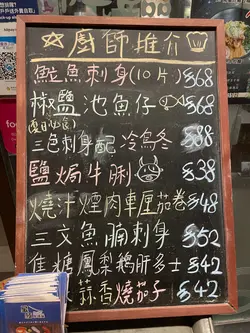 ☆廚師推介
魷魚刺身(10片) $68
椒鹽池魚仔 $68
夏日必食
三色刺身配冷烏冬 $88
鹽焗牛脷 $38
燒汁煙肉車厘茄卷 $48
三文魚腩刺身 $52
焦糖鳳梨鵝肝多士 $42
蒜香燒茄子 $42